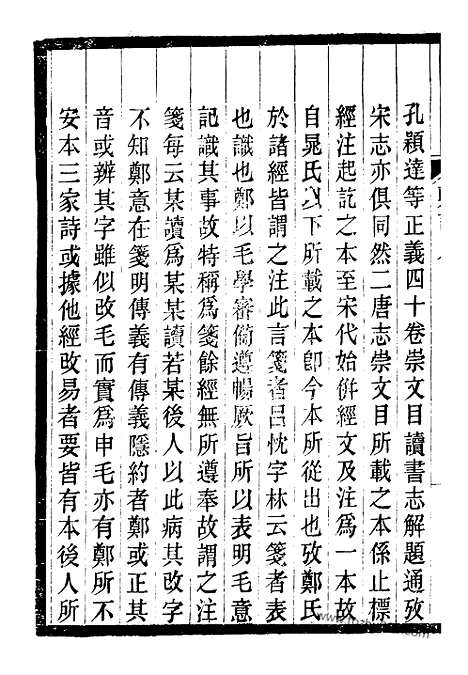 孔穎達等正義四十卷崇文目讀書志解題通攷
宋志亦俱同然二唐志崇文目所載之本係止標
經注起訖之本至宋代始併經文及注爲一本故
自晁氏以下所載之本卽今本所從出也攷鄭氏
於諸經皆謂之注此言箋者呂忱字林云箋者表
也識也鄭以毛學審備遵暢厥旨所以表明毛意
記識其事故特稱爲箋餘經無所遵奉故謂之注
箋每云某讀爲某某讀若某後人以此病其改字
不知鄭意在箋明傳義有傳義隱約者鄭或正其
音或辨其字雖似改毛而實爲申毛亦有鄭所不
安本三家詩或據他經改易者要皆有本後人所